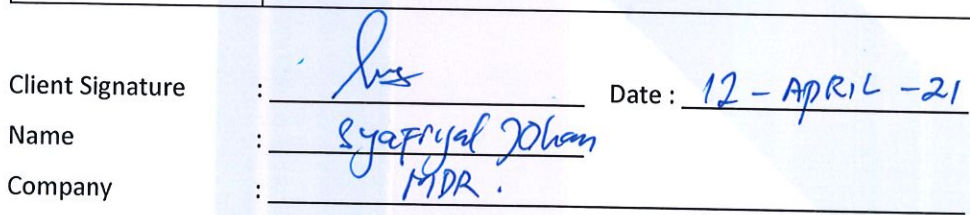 Client Signature : Date : 12 - APRIL - 21
Name : Syafriyal Johan
Company : MDR .